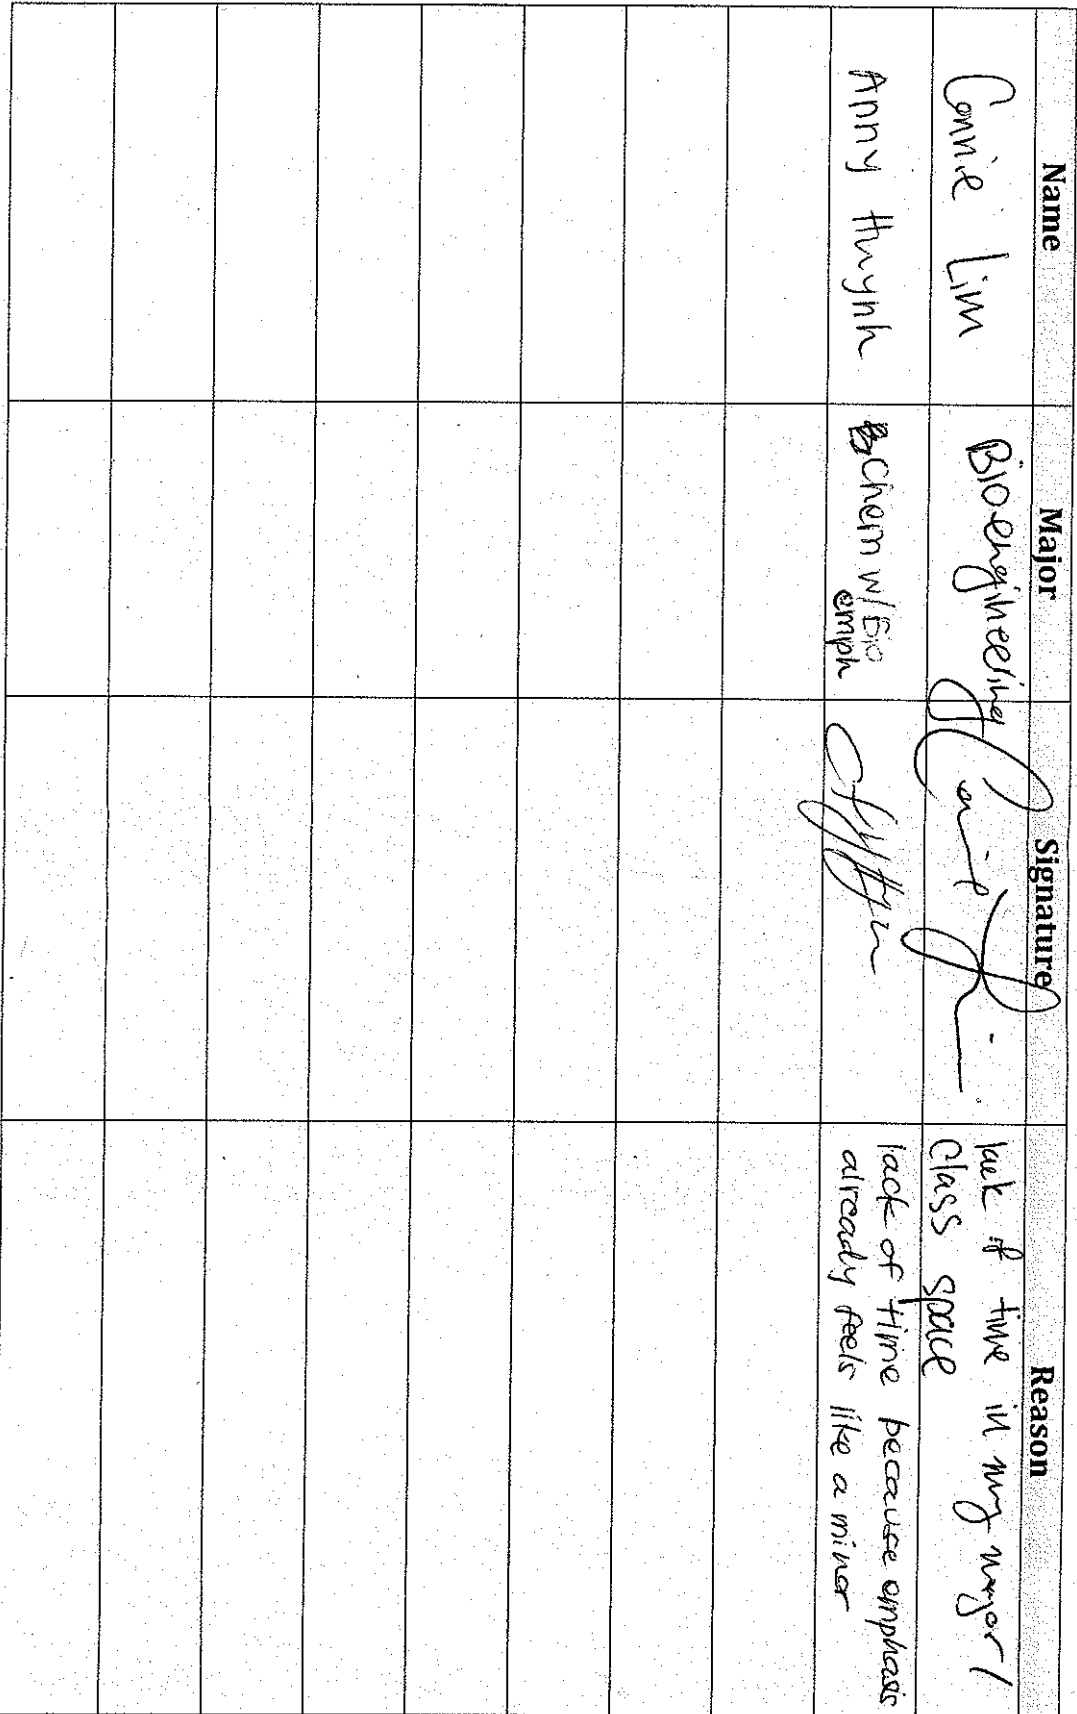 Name Major Signature Reason
Connie Lim Bioengineering Connie Lim lack of time in my major/
class space
Anny Huynh Chem w/ Bio lack of time because emphasis
emph already feels like a minor